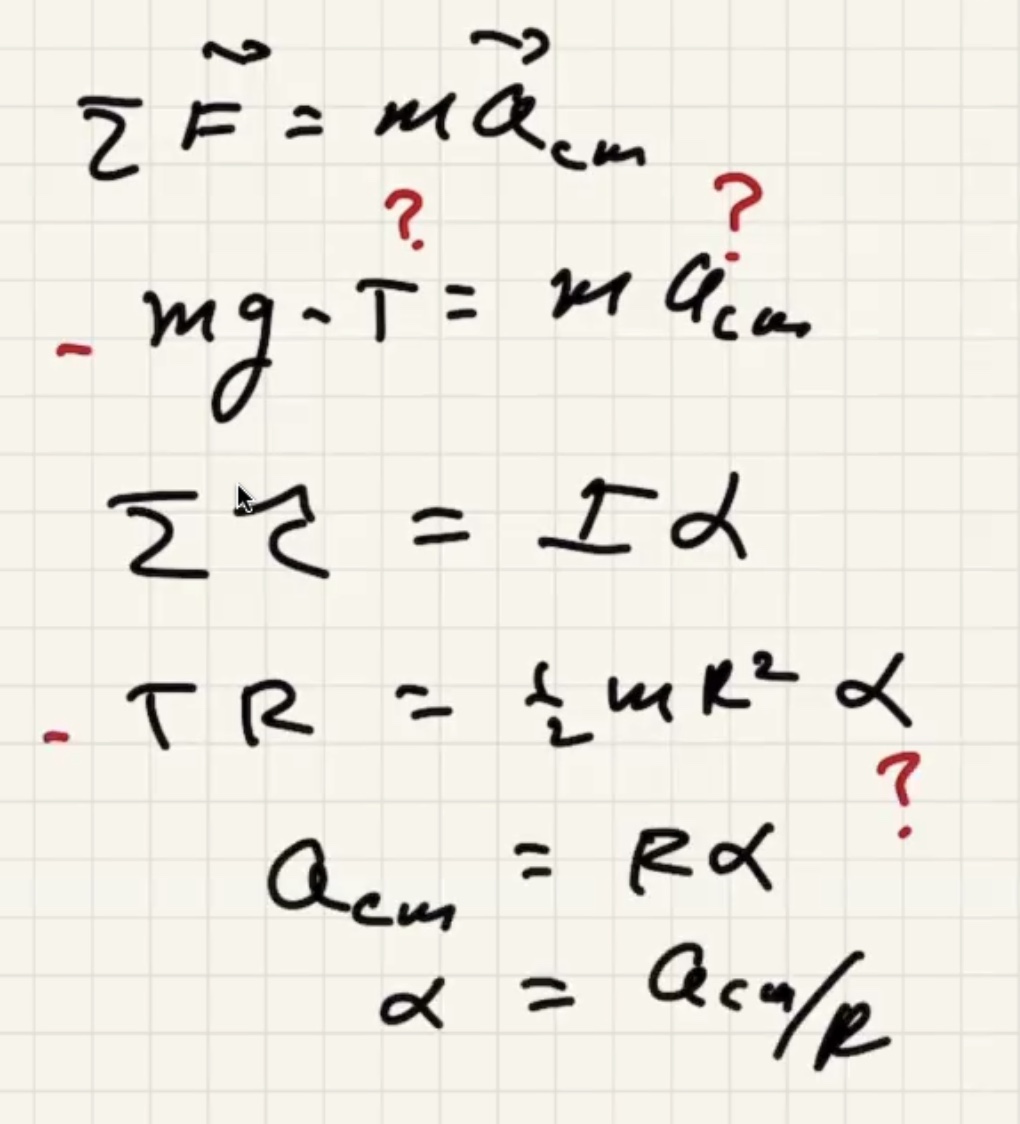 Σ F⃗ = m a⃗_cm
? ?
- mg - T = m a_cm
Σ τ = I α
- T R = ½ m R² α
?
a_cm = R α
α = a_cm/R